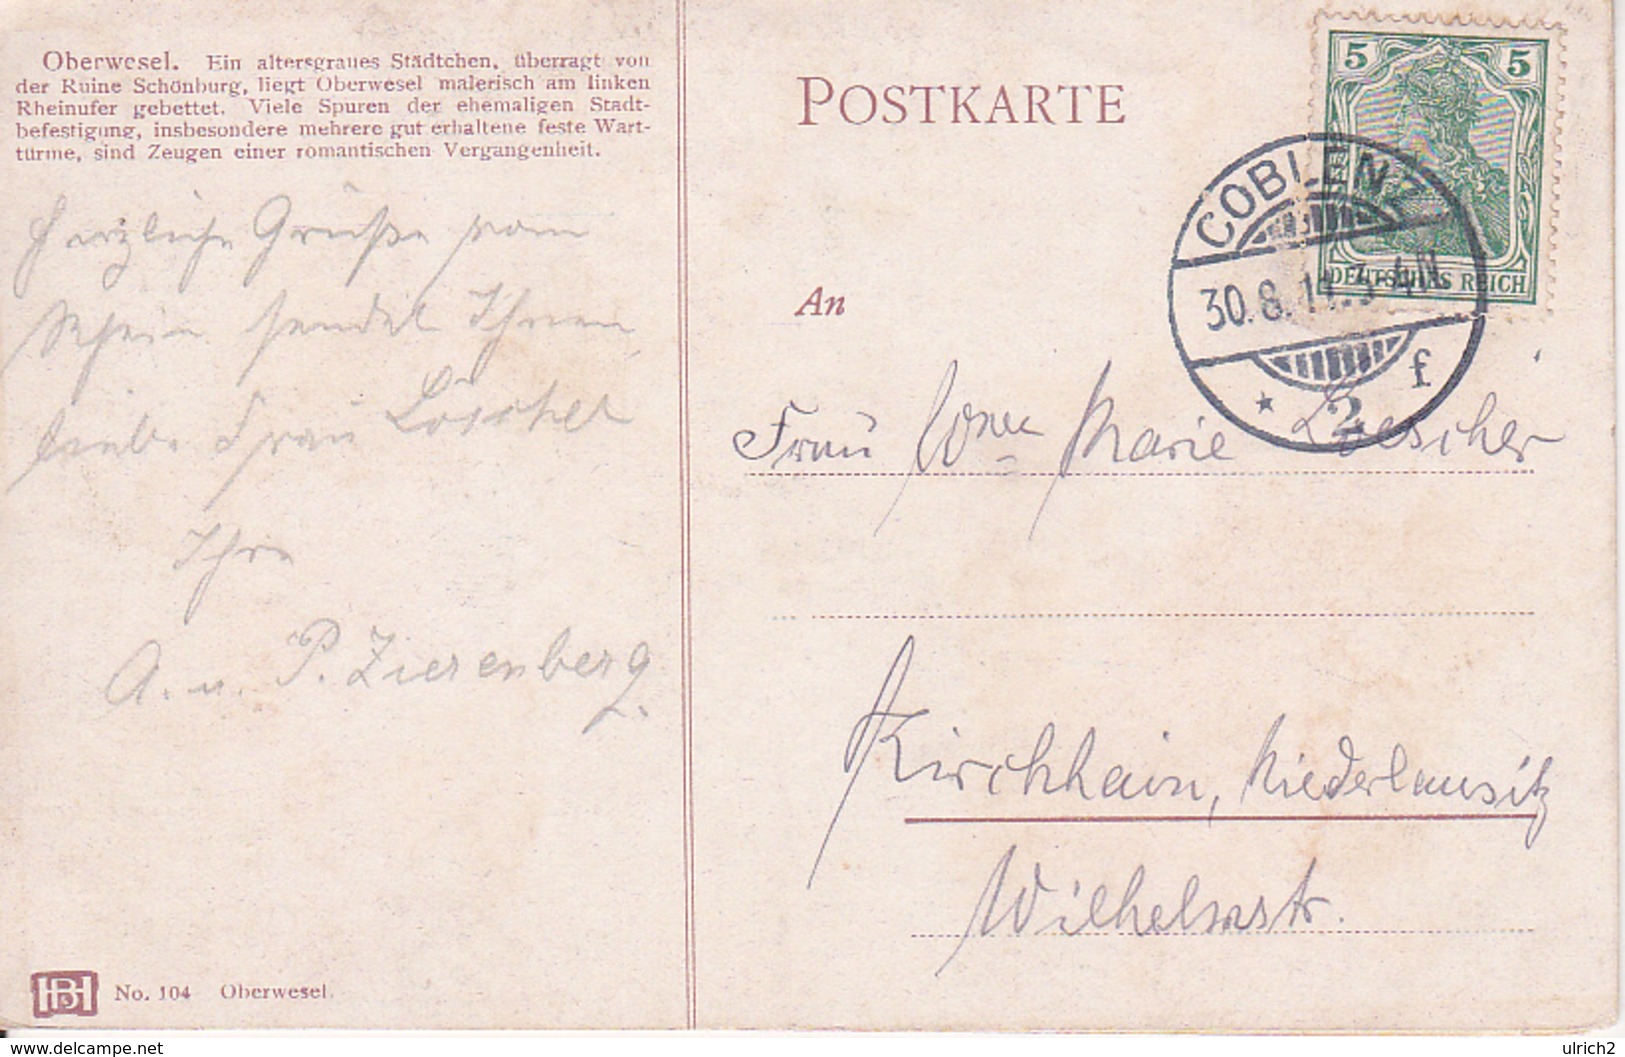 Oberwesel. Ein altersgraues Städtchen, überragt von
der Ruine Schönburg, liegt Oberwesel malerisch am linken
Rheinufer gebettet. Viele Spuren der ehemaligen Stadt-
befestigung, insbesondere mehrere gut erhaltene feste Wart-
türme, sind Zeugen einer romantischen Vergangenheit.
Herzliche Grüße vom
Rhein sendet Ihnen
liebe Frau Löscher
Ihre
A. u. P. Zierenberg.
No. 104 Oberwesel.
POSTKARTE
5 5
DEUTSCHES REICH
COBLENZ
30.8.11.3-4N.
* 2 f
An
Frau Wwe Marie Loescher
Kirchhain, Niederlausitz
Wilhelmstr.
delcampe.net
ulrich2